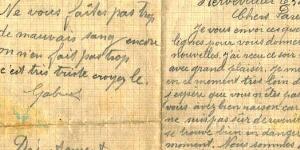 Ne vous faîtes pas trop
de mauvais sang encore
on n'en fait pas trop
c'est très triste croyez le.
Gabriel
Chers Par
Je vous envoi ces que
lignes pour vous donner
nouvelles. J'ai reçu ce soir
avec grand plaisir. Je
en ce moment très loin
J'espère que vous n'êtes pas
vous avez bien raison car
ne suis pas sur devenir
se trouve bien en danger
moment. Nous sommes